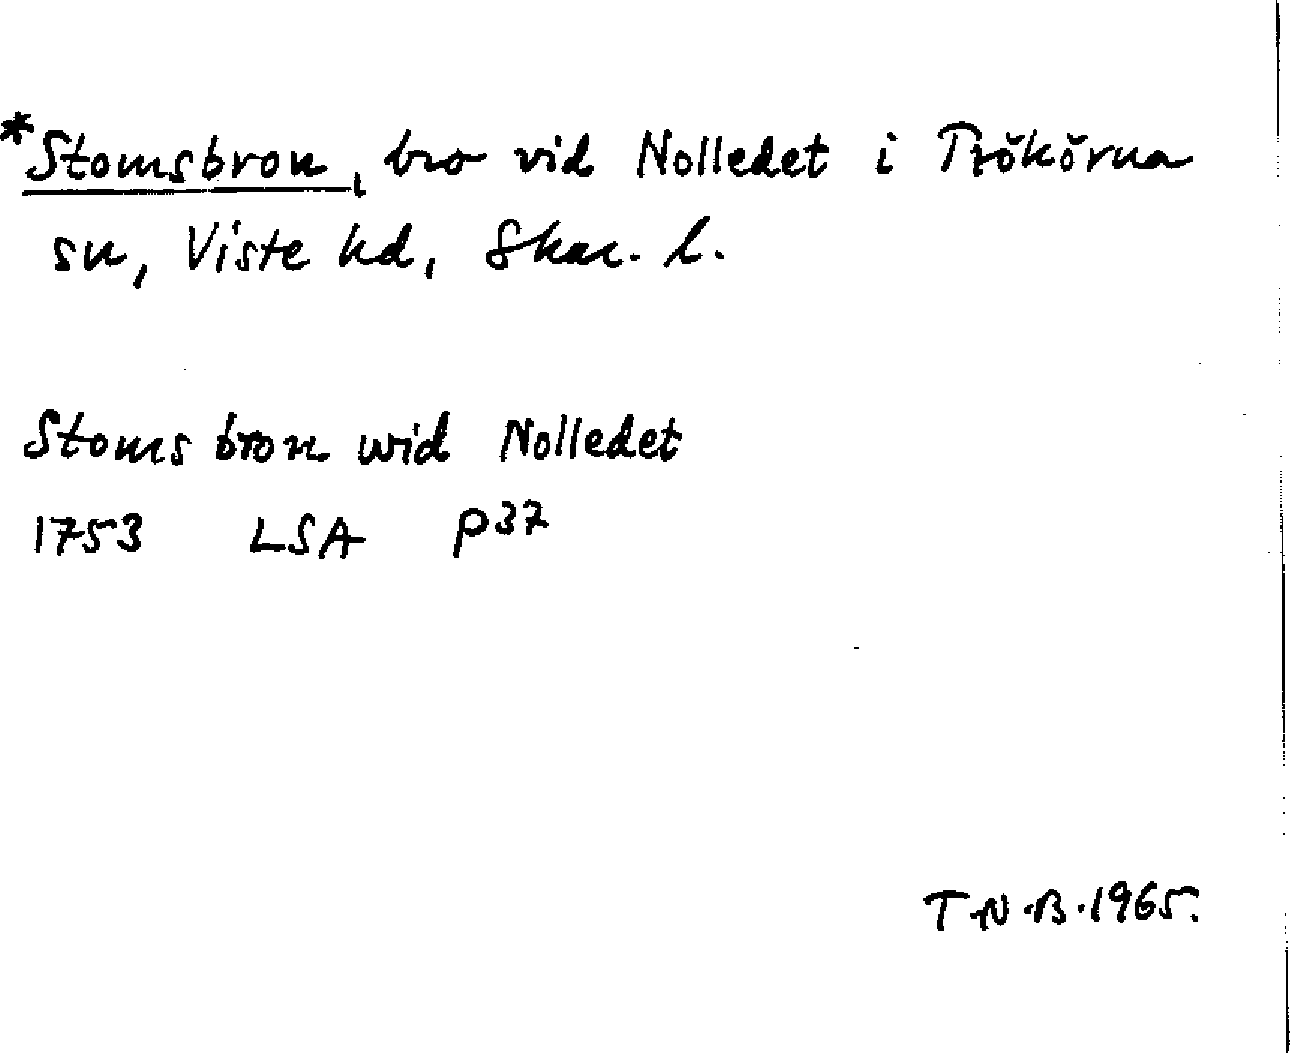 *Stomsbron, bro vid Nolledet i Trökörna
sn, Viste hd, Skar. l.
Stoms bron wid Nolledet
1753 LSA P37
T.N.B. 1965.